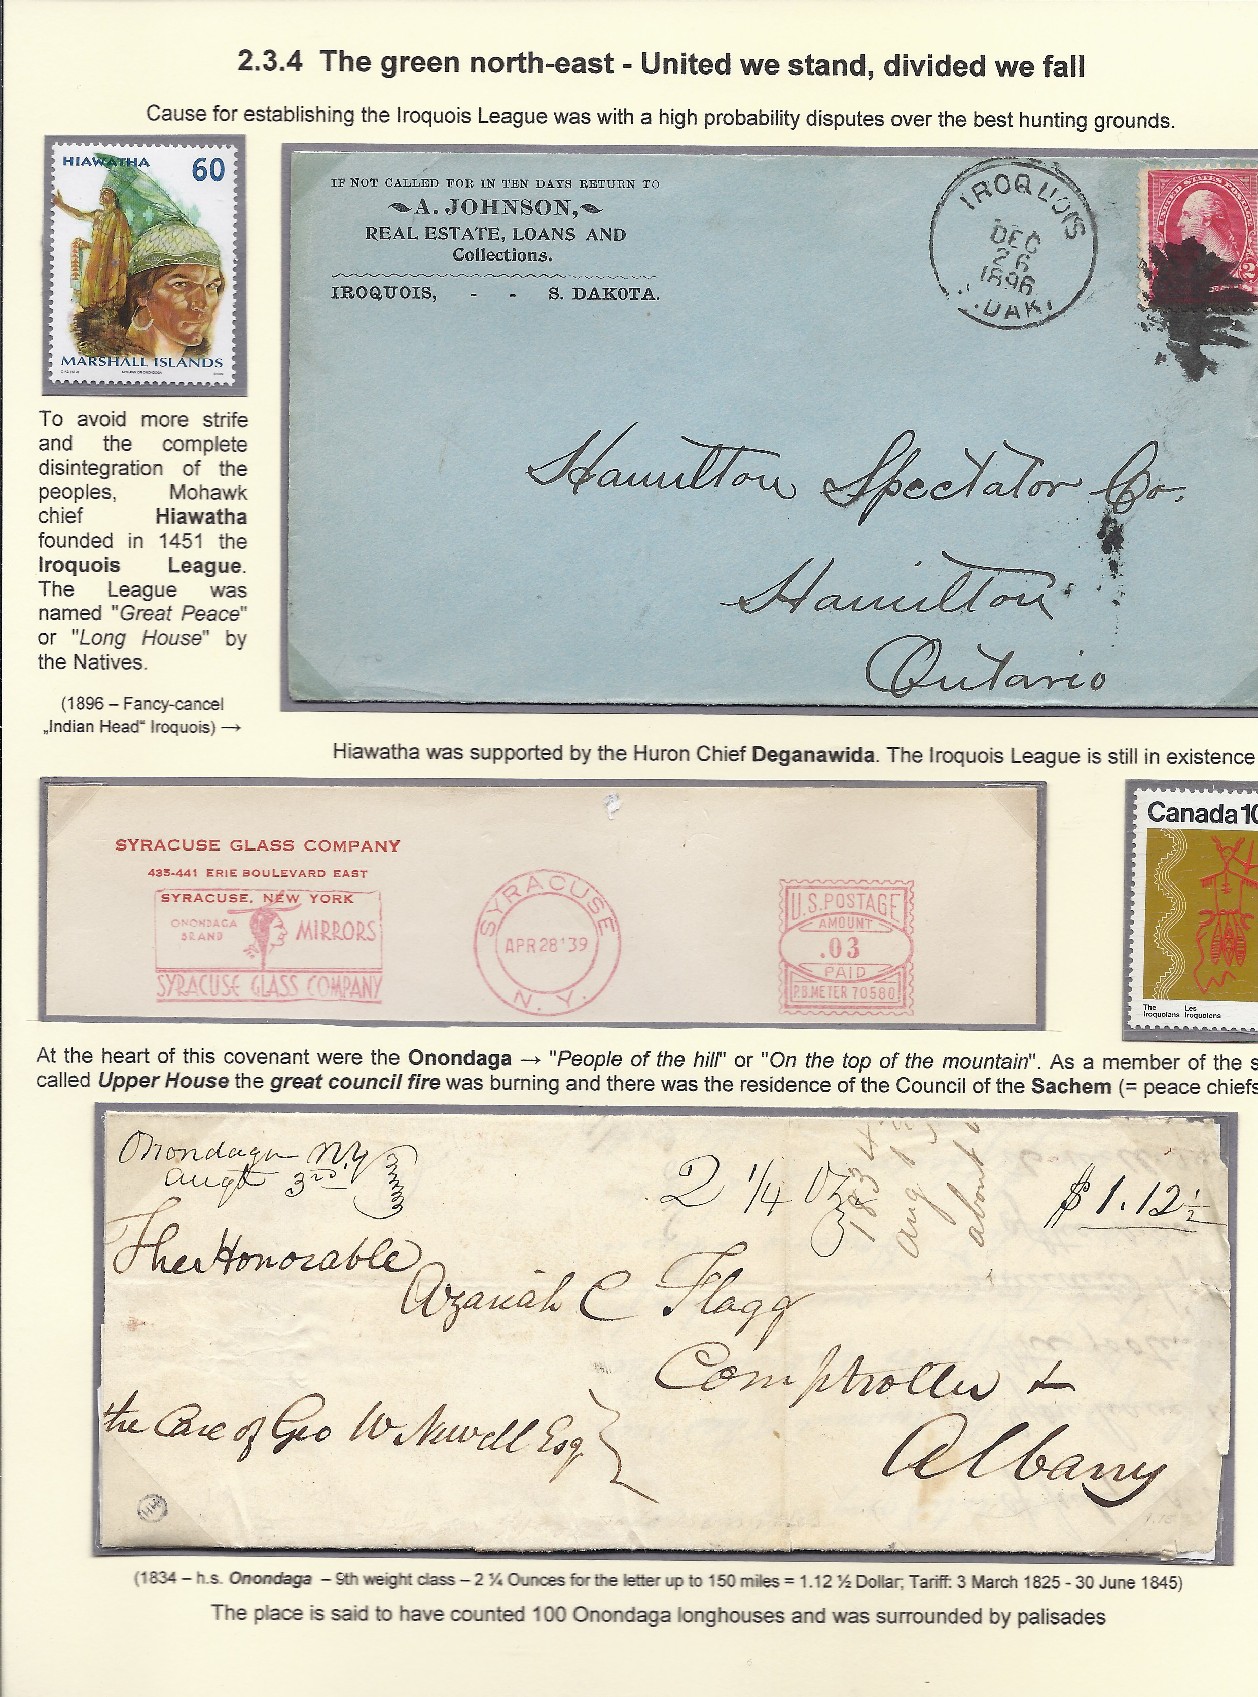 2.3.4 The green north-east - United we stand, divided we fall
Cause for establishing the Iroquois League was with a high probability disputes over the best hunting grounds.
HIAWATHA 60
MARSHALL ISLANDS
IF NOT CALLED FOR IN TEN DAYS RETURN TO
A. JOHNSON,
REAL ESTATE, LOANS AND
Collections.
IROQUOIS, - - S. DAKOTA.
IROQUOIS
DEC
26
1896
DAK.
UNITED STATES POSTAGE
2
Hamilton Spectator Co.
Hamilton
Ontario
To avoid more strife
and the complete
disintegration of the
peoples, Mohawk
chief Hiawatha
founded in 1451 the
Iroquois League.
The League was
named "Great Peace"
or "Long House" by
the Natives.
(1896 – Fancy-cancel
„Indian Head“ Iroquois) →
Hiawatha was supported by the Huron Chief Deganawida. The Iroquois League is still in existence
SYRACUSE GLASS COMPANY
435-441 ERIE BOULEVARD EAST
SYRACUSE, NEW YORK
ONONDAGA
BRAND
MIRRORS
SYRACUSE GLASS COMPANY
SYRACUSE
APR 28 '39
N.Y.
U.S. POSTAGE
AMOUNT
.03
PAID
P.B. METER 70580
Canada 10
The Les
Iroquoians Iroquoiens
At the heart of this covenant were the Onondaga → "People of the hill" or "On the top of the mountain". As a member of the s
called Upper House the great council fire was burning and there was the residence of the Council of the Sachem (= peace chiefs
Onondaga N.Y
Augt 3rd
2 1/4 Oz
1834
aug
about
$1.12 1/2
The Honorable
Azariah C Flagg
Comptroller
Albany
the Care of Geo W Newell Esq
(1834 – h.s. Onondaga – 9th weight class – 2 ¼ Ounces for the letter up to 150 miles = 1.12 ½ Dollar; Tariff: 3 March 1825 - 30 June 1845)
The place is said to have counted 100 Onondaga longhouses and was surrounded by palisades